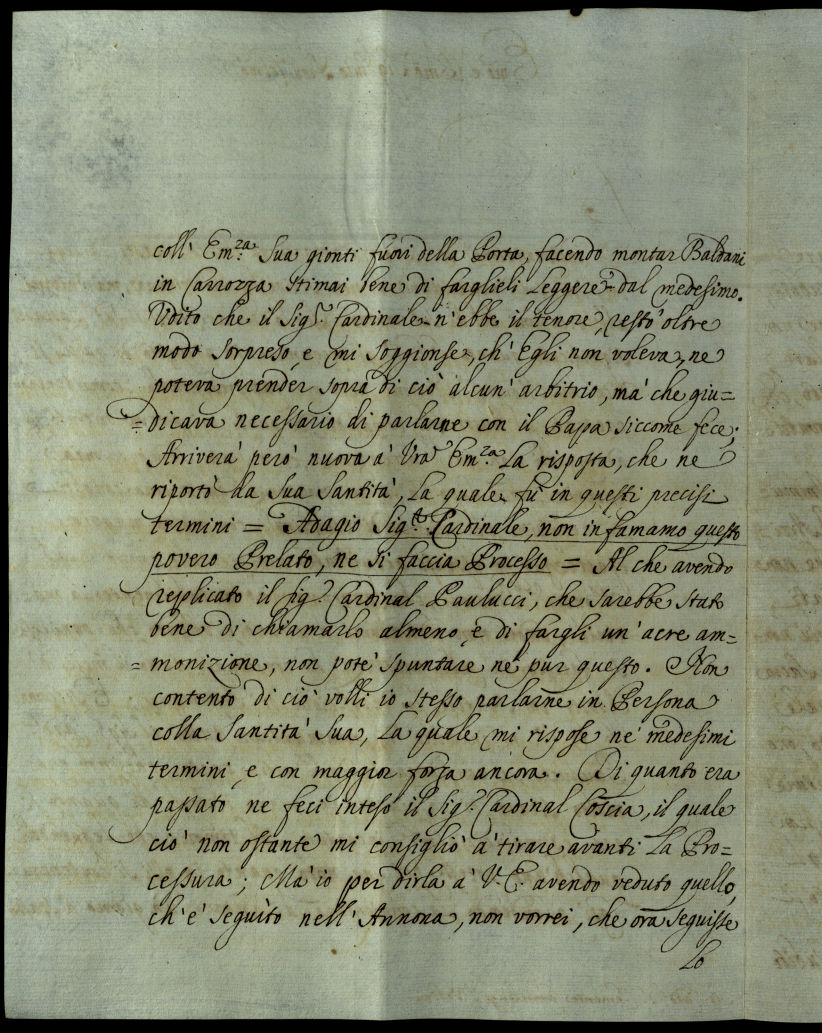 coll' Em.za Sua gionti fuori della Porta, facendo montar Baldani
in Carrozza stimai bene di farglieli Leggere dal medesimo.
Udito che il Sig.r Cardinale n'ebbe il tenore, restò oltre
modo sorpreso, e mi soggionse, ch'Egli non voleva, ne
poteva prender sopra di ciò alcun' arbitrio, mà che giu=
=dicava necessario di parlarne con il Papa siccome fece;
Arriverà però nuova à Vra Em.za La risposta, che ne
riportò da Sua Santità, La quale fù in questi precisi
termini = Adagio Sig.r Cardinale, non infamamo questo
povero Prelato, ne si faccia Processo = Al che avendo
replicato il Sig.r Cardinal Paulucci, che sarebbe stato
bene di chiamarlo almeno, e di fargli un' acre am=
=monizione, non potè spuntare nè pur questo. Non
contento di ciò volli io stesso parlarne in Persona
colla Santità Sua, La quale mi rispose ne' medesimi
termini, e con maggior forza ancora. Di quanto era
passato ne feci inteso il Sig.r Cardinal Coscia, il quale
ciò non ostante mi consigliò à tirare avanti La Pro=
cessura; Mà io per dirla à V.E. avendo veduto quello,
ch'è seguìto nell'Annona, non vorrei, che ora seguisse
Lo